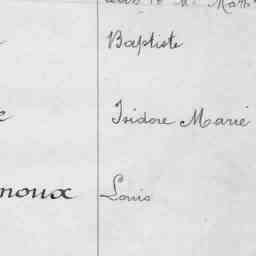 Baptiste
Isidore Marie
noux Louis